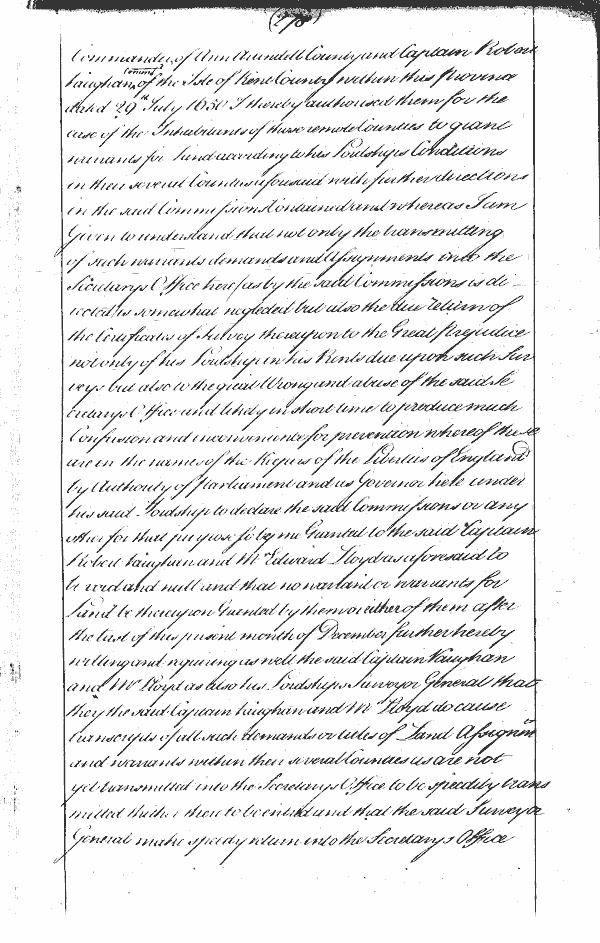 Commander of Ann Arundell County and Captain Robert
Vaughan Comm.r of the Isle of Kent County within this Province
dated 29th July 1650 I thereby authorised them for the
ease of the Inhabitants of those remote Counties to grant
warrants for Land according to his Lordships Conditions
in their several Counties aforesaid with further directions
in the said Commissions Contained and whereas I am
Given to understand that not only the transmitting
of such warrants demands and Assignments into the
Secretarys Office here (as by the said Commissions is di-
rected) is somewhat neglected but also the due return of
the Certificates of Survey thereupon to the Great prejudice
not only of his Lordship in his Rents due upon such Sur
veys but also to the great Wrong and abuse of the said Se
cretarys Office and likely in short time to produce much
Confusion and inconvenience for prevention whereof these
are in the names of the Keepers of the Liberties of England
by Authority of Parliament and as Governor here under
his said Lordship to declare the said Commissions or any
other for that purpose so by me Granted to the said Captain
Robert Vaughan and Mr Edward Lloyd as aforesaid to
be void and null and that no warrant or warrants for
Land be thereupon Granted by them or either of them after
the last of this present month of December further hereby
willing and requiring as well the said Captain Vaughan
and Mr Lloyd as also his Lordships Surveyor General that
they the said Captain Vaughan and Mr Lloyd do cause
transcripts of all such demands or titles of Land Assignmts
and warrants within their several Counties as are not
yet transmitted into the Secretarys Office to be speedily trans
mitted thither there to be entred and that the said Surveyor
General make speedy return into the Secretarys Office